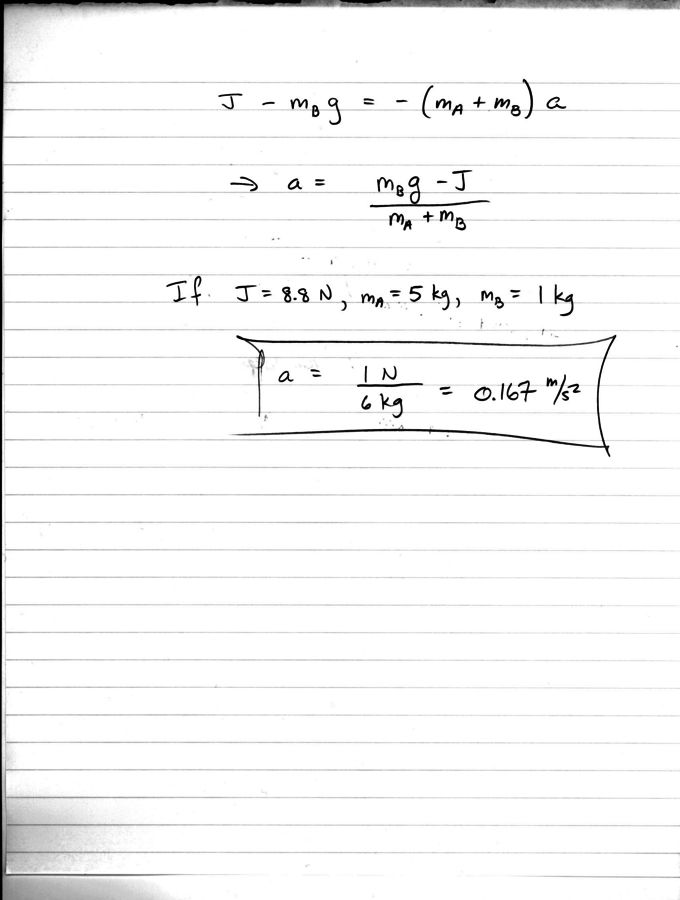 J - m_B g = - (m_A + m_B) a
→ a = (m_B g - J) / (m_A + m_B)
If J = 8.8 N, m_A = 5 kg, m_B = 1 kg
a = 1 N / 6 kg = 0.167 m/s²